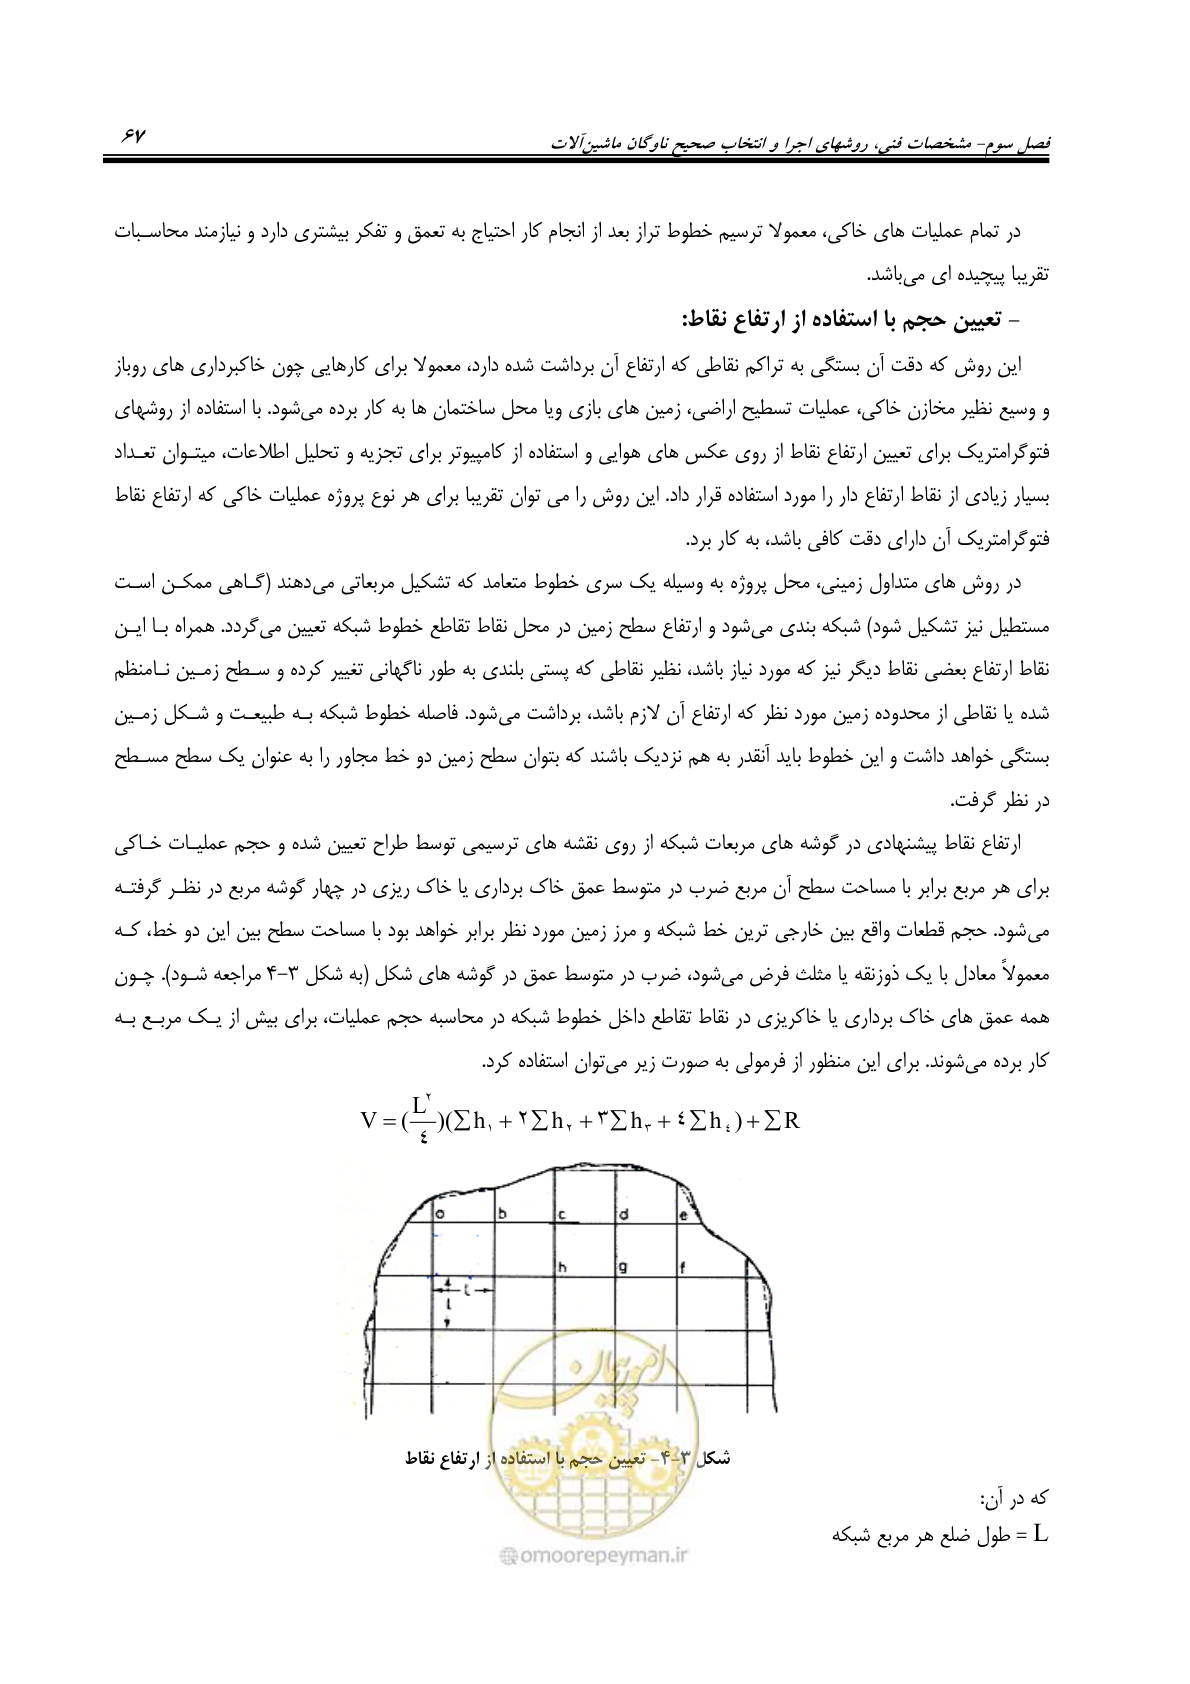 فصل سوم- مشخصات فنی، روشهای اجرا و انتخاب صحیح ناوگان ماشین‌آلات
۶۷
در تمام عملیات های خاکی، معمولا ترسیم خطوط تراز بعد از انجام کار احتیاج به تعمق و تفکر بیشتری دارد و نیازمند محاسـبات
تقریبا پیچیده ای می‌باشد.
– تعیین حجم با استفاده از ارتفاع نقاط:
این روش که دقت آن بستگی به تراکم نقاطی که ارتفاع آن برداشت شده دارد، معمولا برای کارهایی چون خاکبرداری های روباز
و وسیع نظیر مخازن خاکی، عملیات تسطیح اراضی، زمین های بازی ویا محل ساختمان ها به کار برده می‌شود. با استفاده از روشهای
فتوگرامتریک برای تعیین ارتفاع نقاط از روی عکس های هوایی و استفاده از کامپیوتر برای تجزیه و تحلیل اطلاعات، میتـوان تعـداد
بسیار زیادی از نقاط ارتفاع دار را مورد استفاده قرار داد. این روش را می توان تقریبا برای هر نوع پروژه عملیات خاکی که ارتفاع نقاط
فتوگرامتریک آن دارای دقت کافی باشد، به کار برد.
در روش های متداول زمینی، محل پروژه به وسیله یک سری خطوط متعامد که تشکیل مربعاتی می‌دهند (گـاهی ممکـن اسـت
مستطیل نیز تشکیل شود) شبکه بندی می‌شود و ارتفاع سطح زمین در محل نقاط تقاطع خطوط شبکه تعیین می‌گردد. همراه بـا ایـن
نقاط ارتفاع بعضی نقاط دیگر نیز که مورد نیاز باشد، نظیر نقاطی که پستی بلندی به طور ناگهانی تغییر کرده و سـطح زمـین نـامنظم
شده یا نقاطی از محدوده زمین مورد نظر که ارتفاع آن لازم باشد، برداشت می‌شود. فاصله خطوط شبکه بـه طبیعـت و شـکل زمـین
بستگی خواهد داشت و این خطوط باید آنقدر به هم نزدیک باشند که بتوان سطح زمین دو خط مجاور را به عنوان یک سطح مسـطح
در نظر گرفت.
ارتفاع نقاط پیشنهادی در گوشه های مربعات شبکه از روی نقشه های ترسیمی توسط طراح تعیین شده و حجم عملیـات خـاکی
برای هر مربع برابر با مساحت سطح آن مربع ضرب در متوسط عمق خاک برداری یا خاک ریزی در چهار گوشه مربع در نظـر گرفتـه
می‌شود. حجم قطعات واقع بین خارجی ترین خط شبکه و مرز زمین مورد نظر برابر خواهد بود با مساحت سطح بین این دو خط، کـه
معمولاً معادل با یک ذوزنقه یا مثلث فرض می‌شود، ضرب در متوسط عمق در گوشه های شکل (به شکل ۳-۴ مراجعه شـود). چـون
همه عمق های خاک برداری یا خاکریزی در نقاط تقاطع داخل خطوط شبکه در محاسبه حجم عملیات، برای بیش از یـک مربـع بـه
کار برده می‌شوند. برای این منظور از فرمولی به صورت زیر می‌توان استفاده کرد.
V = (L^۲/٤)(∑h₁ + ۲∑h₂ + ۳∑h₃ + ٤∑h₄) + ∑R
a b c d e
h g f
L
L
امور پیمان
شکل ۳-۴- تعیین حجم با استفاده از ارتفاع نقاط
که در آن:
L = طول ضلع هر مربع شبکه
@omoorepeyman.ir